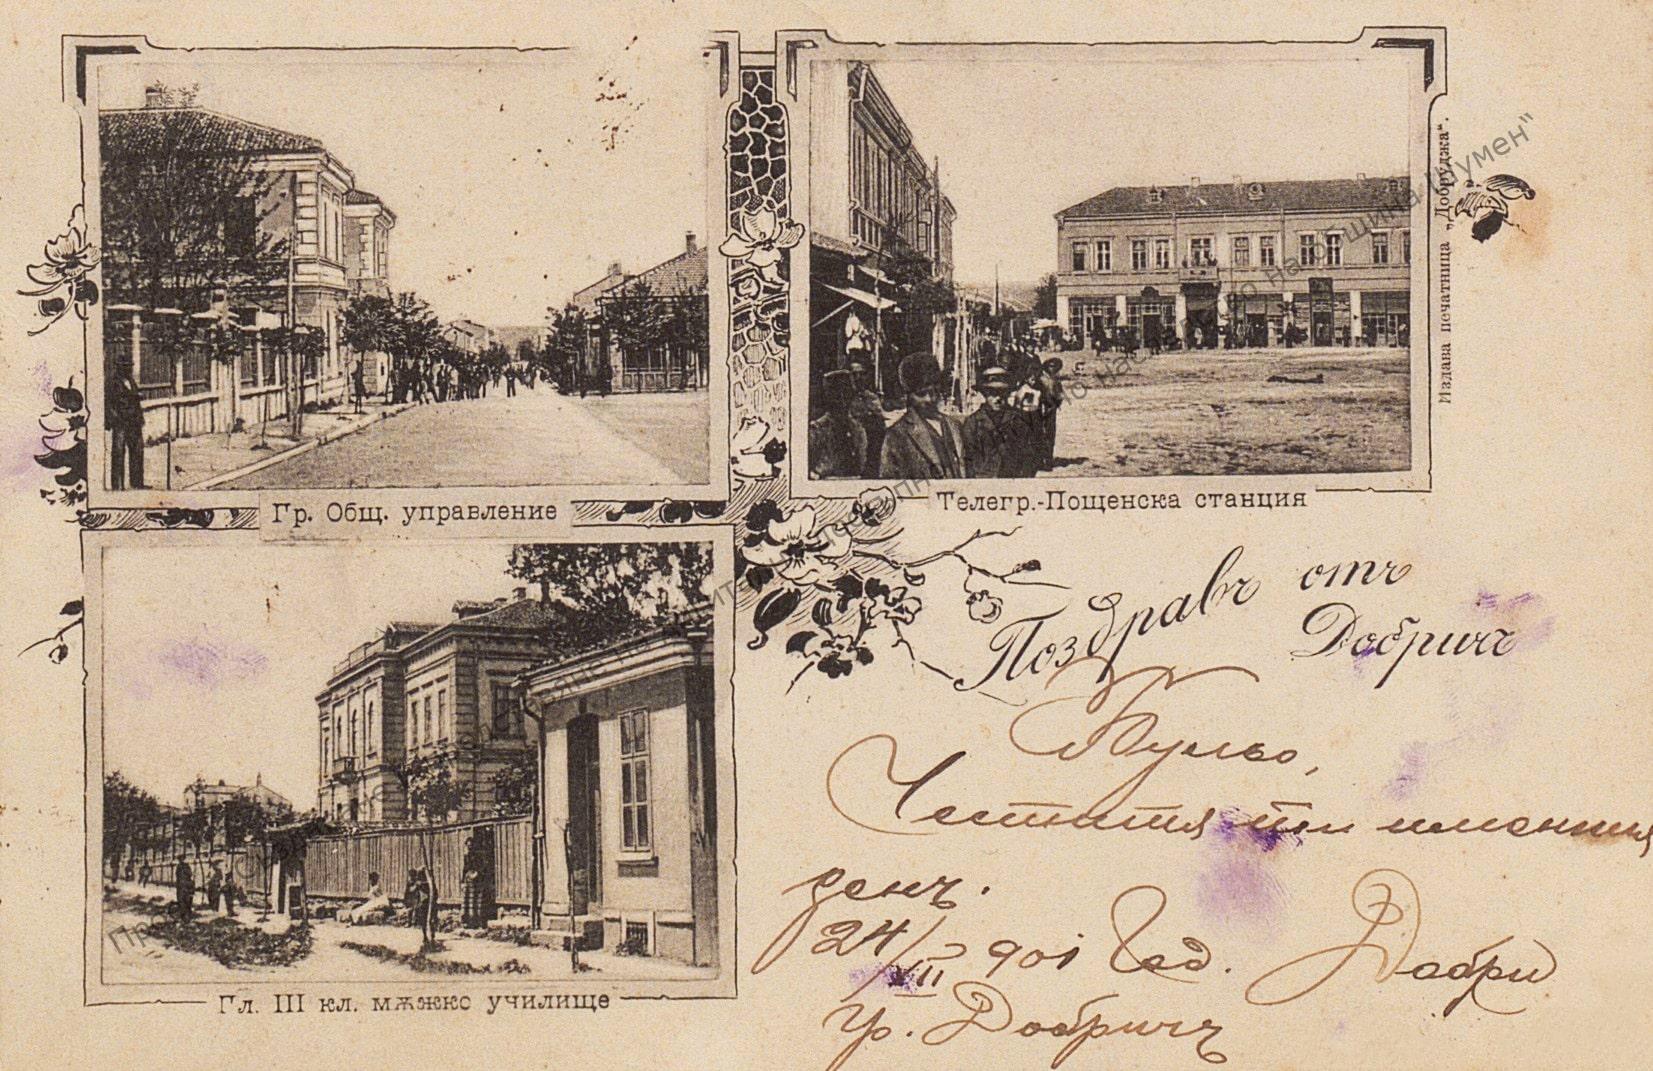 Гр. Общ. управление
Телегр.-Пощенска станция
Издава печатница „Добруджа“.
Гл. III кл. мѫжко училище
Поздравъ отъ
Добричъ
Кульо,
Честития ти имения
денъ.
24/VII 901 год. Добри
гр. Добричъ